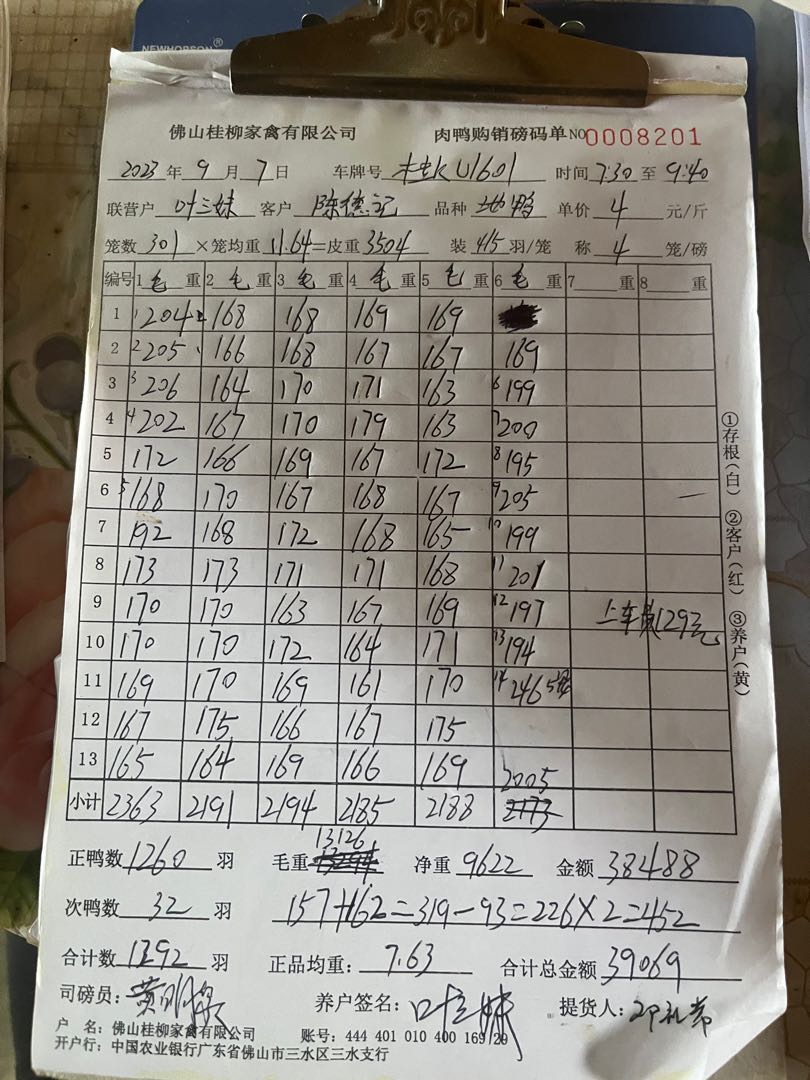 NEWHOBSON®
佛山桂柳家禽有限公司 肉鸭购销磅码单 NO 0008201
2023年9月7日 车牌号 桂K U1601 时间 7:30 至 9:40
联营户 叶三妹 客户 陈德记 品种 地鸭 单价 4 元/斤
笼数 301 ×笼均重 11.64 =皮重 3504 装 4.5 羽/笼 称 4 笼/磅
编号 1 毛 重 2 毛 重 3 毛 重 4 毛 重 5 毛 重 6 毛 重 7 重 8 重
1 1 204 168 168 169 169
2 2 205 166 168 167 167 169
3 3 206 164 170 171 163 6 199
4 4 202 167 170 179 163 7 200
5 172 166 169 167 172 8 195
6 5 168 170 167 168 167 9 205
7 192 168 172 168 165 10 199
8 173 173 171 171 168 11 201
9 170 170 163 167 169 12 197 上车费129元
10 170 170 172 164 171 13 194
11 169 170 169 161 170 14 246
12 167 175 166 167 175
13 165 164 169 166 169
2005
小计 2363 2191 2194 2185 2188 2173
13126
正鸭数 1260 羽 毛重 净重 9622 金额 38488
次鸭数 32 羽 157+162=319-93=226×2=452
合计数 1292 羽 正品均重: 7.63 合计总金额 39069
司磅员: 黄明 养户签名: 叶三妹 提货人:
户 名: 佛山桂柳家禽有限公司 账号: 444 401 010 400 169 29
开户行: 中国农业银行广东省佛山市三水区三水支行
①存根(白) ②客户(红) ③养户(黄)